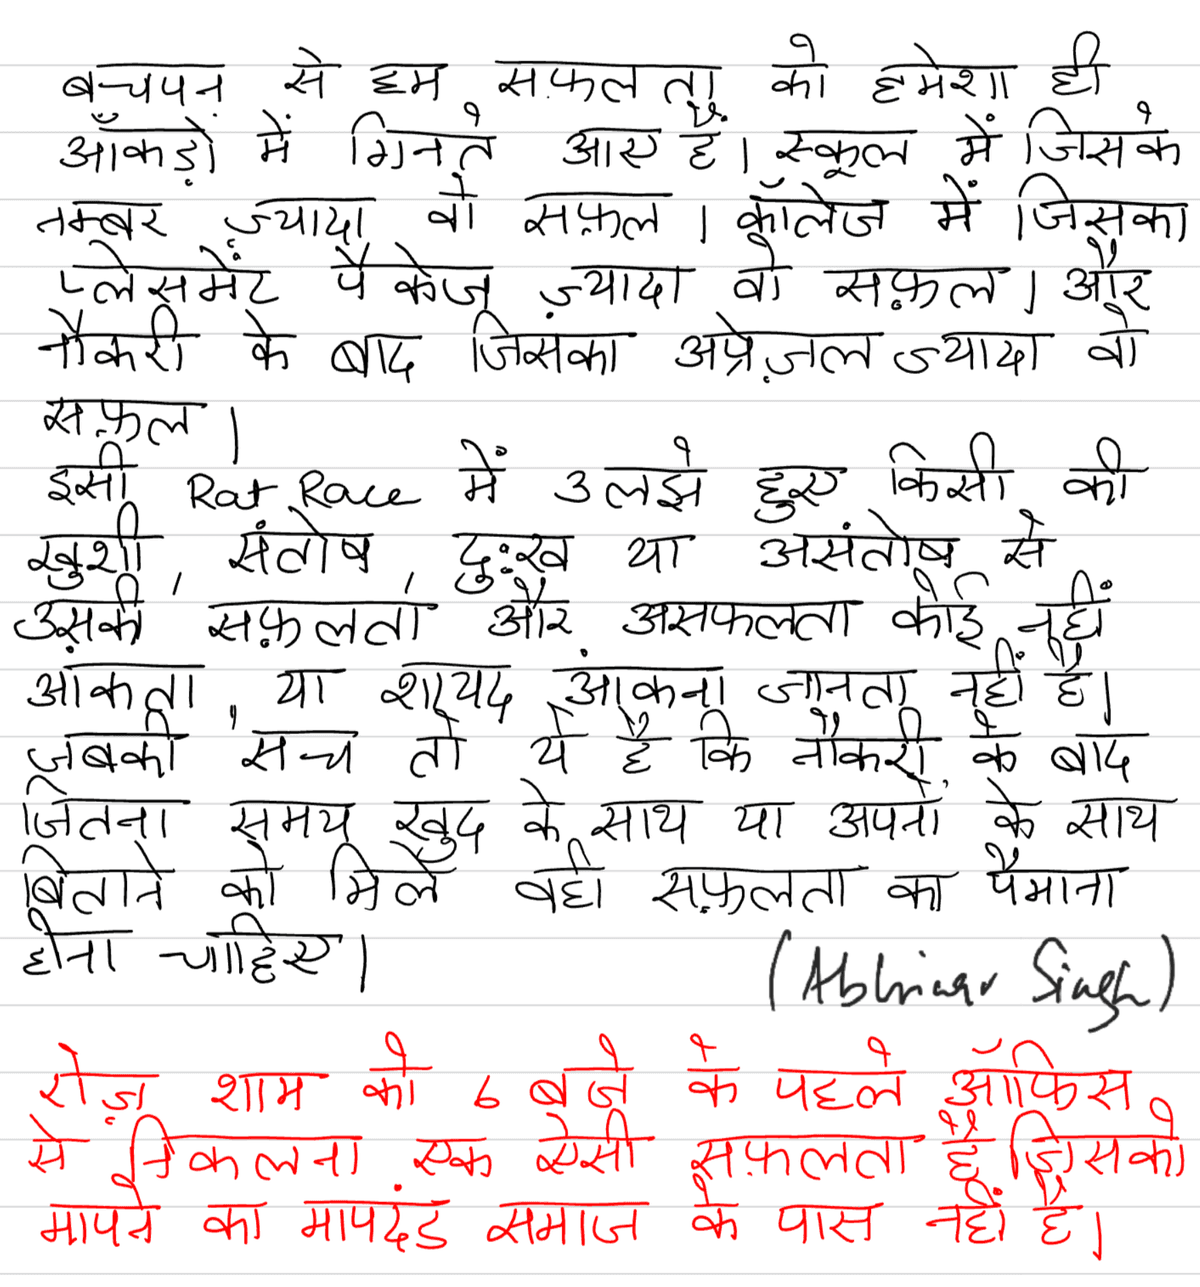 बचपन से हम सफलता को हमेशा ही
आँकड़ों में गिनते आए हैं। स्कूल में जिसके
नम्बर ज़्यादा वो सफ़ल। कॉलेज में जिसका
प्लेसमेंट पैकेज ज़्यादा वो सफ़ल। और
नौकरी के बाद जिसका अप्रेज़ल ज्यादा वो
सफ़ल।
इसी Rat Race में उलझे हुए किसी की
खुशी, संतोष, दुःख या असंतोष से
उसकी सफ़लता और असफलता कोई नहीं
आंकता, या शायद आंकना जानता नहीं है।
जबकी सच तो ये है कि नौकरी के बाद
जितना समय खुद के साथ या अपनों के साथ
बिताने को मिले वही सफ़लता का पैमाना
होना चाहिए।
(Abhinav Singh)
रोज़ शाम को 6 बजे के पहले ऑफिस
से निकलना एक ऐसी सफ़लता है जिसको
मापने का मापदंड समाज के पास नहीं है।